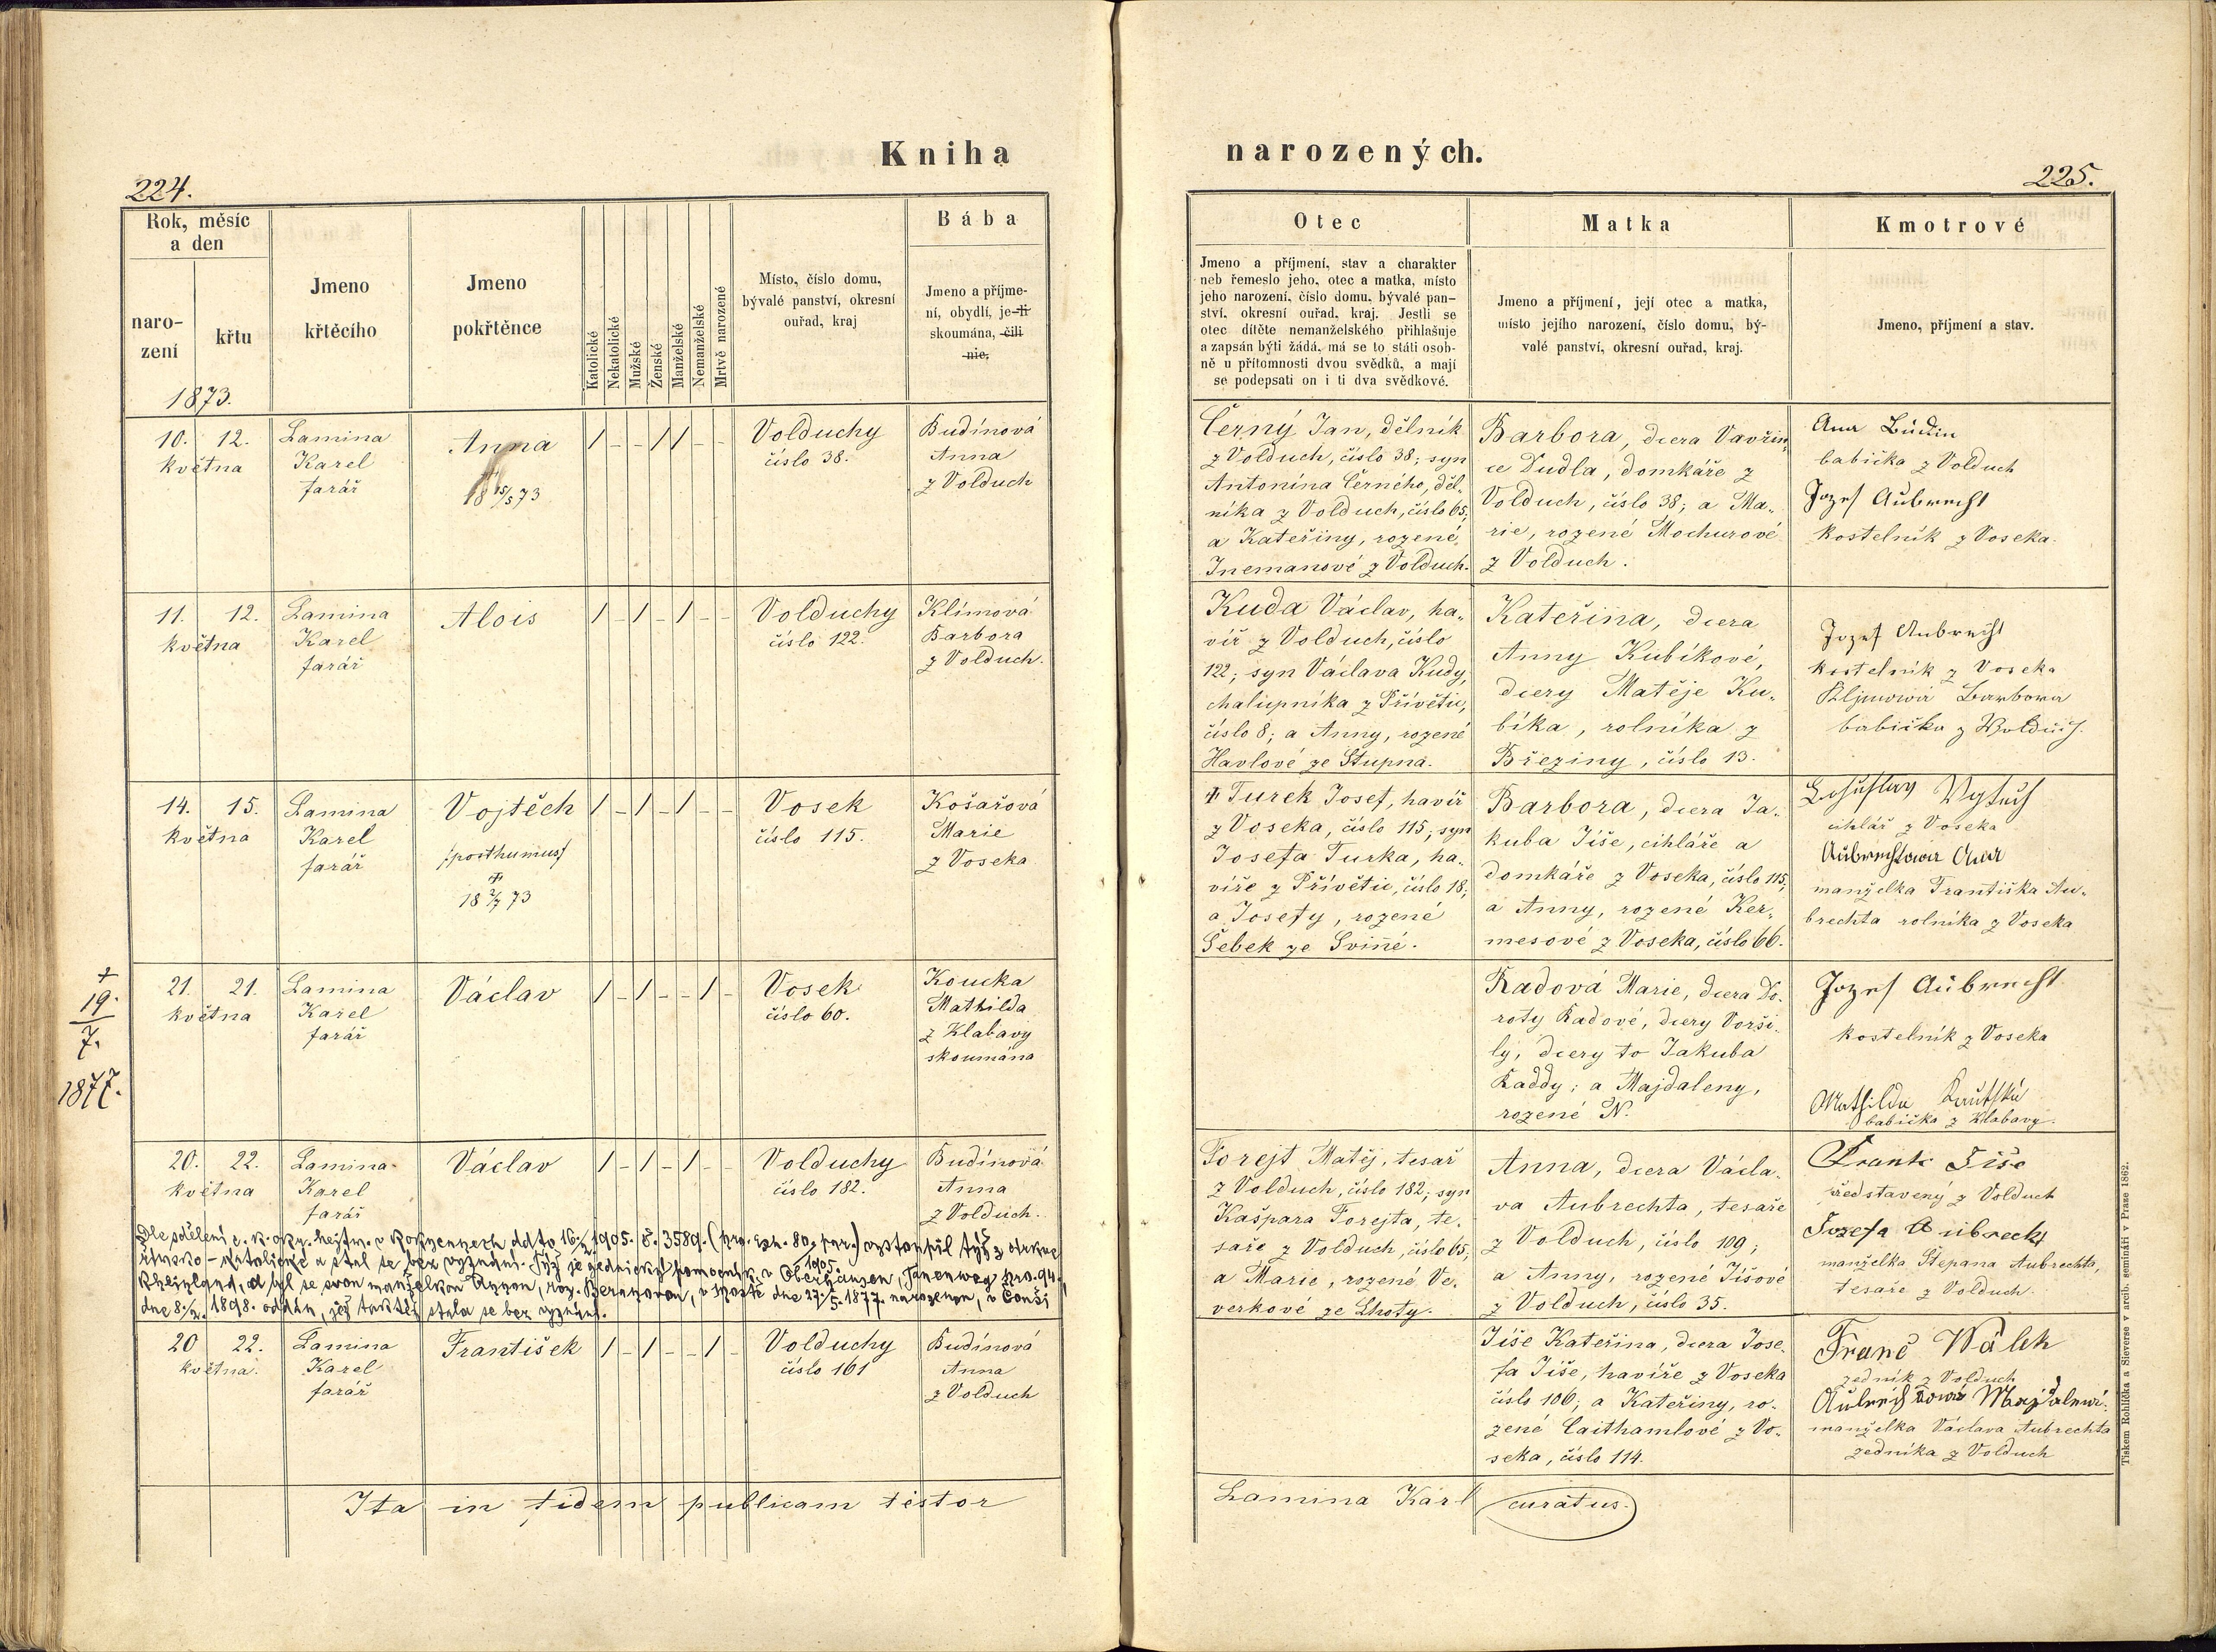 Kniha
224.
Rok, měsíc
a den
naro-
zení
křtu
1873.
Jmeno
křtěcího
Jmeno
pokřtěnce
Katolické
Nekatolické
Mužské
Ženské
Manželské
Nemanželské
Mrtvě narozené
Místo, číslo domu,
bývalé panství, okresní
ouřad, kraj
Bába
Jmeno a příjme-
ní, obydlí, je-li
skoumána, čili
nic,
10. 12. Lamina Anna / - - / / - - Volduchy Budínová
května Karel číslo 38. Anna
farář 18 15/5 73 z Volduch
11. 12. Lamina Alois / - / - / - - Volduchy Klímová
května Karel číslo 122. Barbora
farář z Volduch.
14. 15. Lamina Vojtěch / - / - / - - Vosek Košařová
května Karel /:posthumus/ číslo 115. Marie
farář z Voseka
†
18 2/7 73
†
19.
7.
1877.
21. 21. Lamina Václav / - / - - / - Vosek Koucka
května Karel číslo 60. Mathilda
farář z Klabavy
skoumána
20. 22. Lamina Václav / - / - / - - Volduchy Budínová
května Karel číslo 182. Anna
farář z Volduch.
Dle sdělení c. k. okr. hejtm. v Rokycanech ddto 16./2. 1905. č. 3589. (pro. exh. 80. far.) vystoupil týž z církve
římsko-katolické a stal se bez vyznání. Týž je zednický pomocník v Oberhausen, (Tanenweg Nro. 94.
1905.
Rheinland, a byl se svou manželkou Annou, roz. Beranovou, v Mostě dne 27./5. 1877. narozenou, v
dne 8./2. 1898. oddán, jež taktéž stala se bez vyznání.
20 22. Lamina František / - / - - / - Volduchy Budínová
května. Karel číslo 161 Anna
farář z Volduch
Ita in fidem publicam testor
narozených.
225.
Otec
Jmeno a příjmení, stav a charakter
neb řemeslo jeho, otec a matka, místo
jeho narození, číslo domu, bývalé pan-
ství, okresní ouřad, kraj. Jestli se
otec dítěte nemanželského přihlašuje
a zapsán býti žádá, má se to státi osob-
ně u přítomnosti dvou svědků, a mají
se podepsati on i ti dva svědkové.
Matka
Jmeno a příjmení, její otec a matka,
místo jejího narození, číslo domu, bý-
valé panství, okresní ouřad, kraj.
Kmotrové
Jmeno, příjmení a stav.
Černý Jan, dělník
z Volduch, číslo 38; syn
Antonína Černého, děl-
níka z Volduch, číslo 65;
a Kateřiny, rozené
Inemanové z Volduch.
Barbora, dcera Vavřin-
ce Dudla, domkáře z
Volduch, číslo 38; a Ma-
rie, rozené Mochurové
z Volduch.
Anna Budin
babička z Volduch
Jozef Aubrecht
kostelník z Voseka.
Kuda Václav, ha-
víř z Volduch, číslo
122; syn Václava Kudy,
chalupníka z Přívětic,
číslo 8; a Anny, rozené
Havlové ze Stupna.
Kateřina, dcera
Anny Kubíkové,
dcery Matěje Ku-
bíka, rolníka z
Březiny, číslo 13.
Jozef Aubrecht
kostelník z Voseka
Kljmowa Barbora
babička z Wolduch.
† Turek Josef, havíř
z Voseka, číslo 115; syn
Josefa Turka, ha-
víře z Přívětic, číslo 18;
a Josefy, rozené
Šebek ze Sviné.
Barbora, dcera Ja-
kuba Jíše, cihláře a
domkáře z Voseka, číslo 115;
a Anny, rozené Ker-
mesové z Voseka, číslo 66.
cihlář z Voseka
Aubrechtowa Anna
manželka Františka Au-
brechta rolníka z Voseka
Radová Marie, dcera Do-
roty Radové, dcery Vorši-
ly, dcery to Jakuba
Raddy; a Majdaleny,
rozené N.
Jozef Aubrecht
kostelník z Voseka
Mathilda Koutská
babička z Klabavy.
Forejt Matěj, tesař
z Volduch, číslo 182; syn
Kašpara Forejta, te-
saře z Volduch, číslo 65;
a Marie, rozené Ve-
verkové ze Lhoty.
Anna, dcera Václa-
va Aubrechta, tesaře
z Volduch, číslo 109;
a Anny, rozené Jíšové
z Volduch, číslo 35.
Frantz Jiše
představený z Volduch
Jozefa Aubrecht
manželka Štěpana Aubrechta,
tesaře z Volduch.
Jíše Kateřina, dcera Jose-
fa Jíše, havíře z Voseka
číslo 106; a Kateřiny, ro-
zené Caithamlové z Vo-
seka, číslo 114.
Franc Wálek
zedník z Volduch
Aubrechtowa Majdalena
manželka Václava Aubrechta
zedníka z Volduch
Lamina Karl curatus.
Tiskem Rohlíčka a Sieverse v arcib. semináři v Praze 1862.